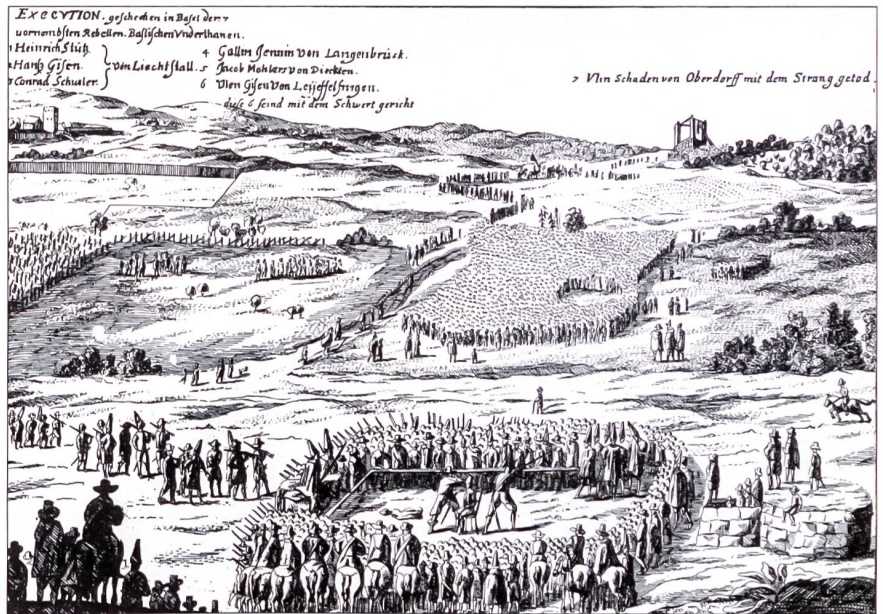 EXECVTION. geschechen in Basel der 7
vornembsten Rebellen. Baslischen Vnderthanen.
1 Heinrich Stütz.
2 Hanß Gisen.
3 Conrad Schuoler.
von Liechtstall.
4 Gallm Jennin von Langenbruck.
5 Jacob Mohlers von Dieckten.
6 Vlen Gisen von Leijffelfingen.
diese 6 seind mit dem Schwert gericht
7 Vlin Schaden von Oberdorff mit dem Strang getod.